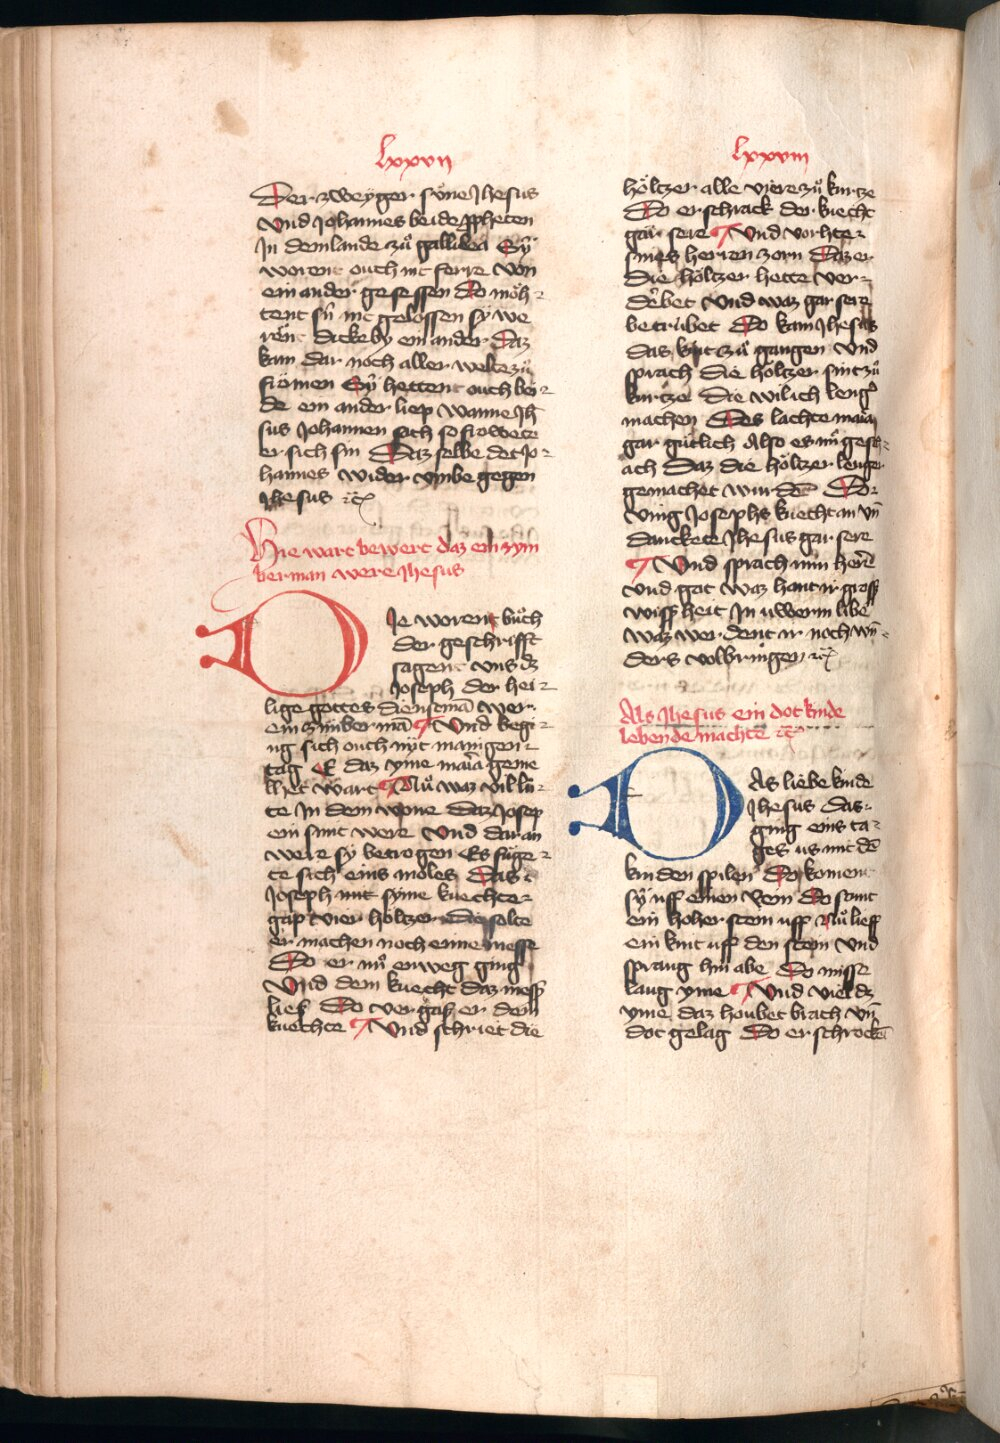 lxxvii
Der zweyger süne Jhesus
vnd Johannes beide ppheten
Jn dem lande zů gallilea Sÿ
worent ouch nit ferre von
ein ander gesessen Do moh-
tent sÿ nit gelossen sy we
rent dicke by ein ander Daz
kam dar noch aller welte zů
fromen Sÿ hettent ouch bei-
de ein ander liep wanne Jhe
sus Johannen sich so frowete
er sich sin Daz selbe det Jo-
hannes wider vmbe gegen
Jhesus etc
Hie wart bewert daz ein zym
berman were Jhesus
Die worent bůch
der geschrifft
sagent vns dz
Joseph der hei-
lige gottes dienstmā wer
ein zimberman Vnd begi-
ng sich ouch mÿt manigen
tag E daz yme maria geme
llet wart Nů waz vil lů-
te Jn dem wone daz Josep
ein sint were Vnd dar an
were sy betrogen Es fuge-
te sich eins moles Das
Joseph mit syme knechte
gap vier höltzer Die solte
er machen noch eime messe
Do er nů enweg ging
Vnd dem knecht daz mess
lies Do vergas er dem
knechte Vnd schriet die
lxxviii
höltzer alle viere zů kurtze
Do erschrack der knecht
gar sere Vnd vorhte
sines herren zorn Daz er
die höltzer hette ver-
derbet Vnd waz gar sere
betrübet Do kam Jhesus
das kint zů gangen Vnd
sprach Die höltzer sint zů
kurtze Die wil ich leng
machen Des lachte maria
gar gütlich Also es nů gesch-
ach Daz die höltzer lenger
gemachet wurdē Do
ving Josephs knecht an vn̄
danckete Jhesus gar sere
Vnd sprach min herre
vnd got waz hant ir gross
wissheit Jn uwerm libe
Waz werdent ir noch wū-
ders volbringen etc
Als Jhesus ein dot kinde
lebende machte etc
Das liebe kinde
Jhesus das
ging eins ta-
ges us mit dē
kinden spilen Do koment
sÿ uff einen rein Do stunt
ein hoher stein uff Nů lieff
ein kint uff den stein Vnd
sprang hin abe Do misse
lang yme Vnd viel dz
yme daz houbet brach vn̄
dot gelag Do erschrockē